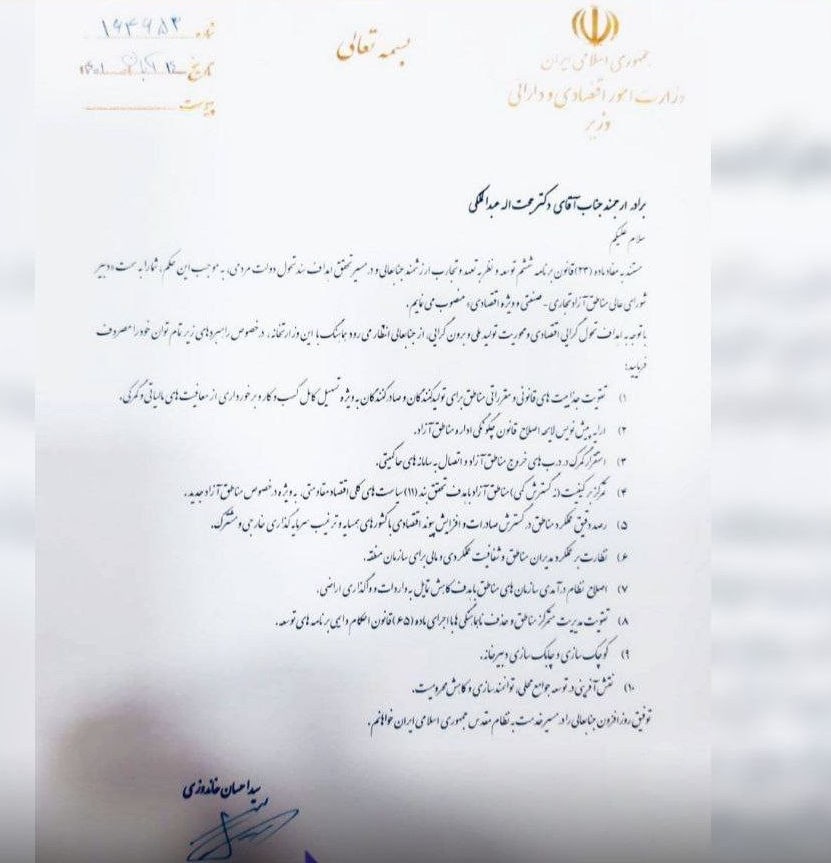 جمهوری اسلامی ایران
وزارت امور اقتصادی و دارائی
وزیر
بسمه تعالی
شماره ۱۶۴۶۹۵۳
تاریخ ۱۴ آبان ۱۴۰۱
پیوست
برادر ارجمند جناب آقای دکتر حجت اله عبدالملکی
سلام علیکم
مستند به مفاد ماده (۲۳) قانون برنامه ششم توسعه و نظر به تعهد و تجارب ارزشمند جنابعالی و در مسیر تحقق اهداف سند تحول دولت مردمی، به موجب این حکم، شما را به سمت «دبیر
شورای عالی مناطق آزاد تجاری - صنعتی و ویژه اقتصادی» منصوب می نمایم.
با توجه به اهداف تحول گرایی اقتصادی و محوریت تولید ملی و برون گرایی، از جنابعالی انتظار می رود هماهنگ با این وزارتخانه، در خصوص راهبردهای زیر تمام توان خود را مصروف
فرمایید:
۱) تقویت جذابیت های قانونی و مقرراتی مناطق برای تولیدکنندگان و صادرکنندگان به ویژه تسهیل کامل کسب و کار و برخورداری از معافیت های مالیاتی و گمرکی.
۲) ارایه پیش نویس لایحه اصلاح قانون چگونگی اداره مناطق آزاد.
۳) استقرار گمرک در درب های خروج مناطق آزاد و اتصال به سامانه های حاکمیتی.
۴) تمرکز بر کیفیت (نه گسترش کمی) مناطق آزاد با هدف تحقق بند (۱۱) سیاست های کلی اقتصاد مقاومتی، به ویژه در خصوص مناطق آزاد جدید.
۵) رصد دقیق عملکرد مناطق در گسترش صادرات و افزایش پیوند اقتصادی با کشورهای همسایه و ترغیب سرمایه گذاری خارجی و مشترک.
۶) نظارت بر عملکرد مدیران مناطق و شفافیت عملکردی و مالی برای سازمان منطقه.
۷) اصلاح نظام درآمدی سازمان های مناطق با هدف کاهش تمایل به واردات و واگذاری اراضی.
۸) تقویت مدیریت متمرکز مناطق و حذف ناهماهنگی ها با اجرای ماده (۶۵) قانون احکام دایمی برنامه های توسعه.
۹) کوچک سازی و چابک سازی دبیرخانه.
۱۰) نقش آفرینی در توسعه جوامع محلی، توانمندسازی و کاهش محرومیت.
توفیق روز افزون جنابعالی را در مسیر خدمت به نظام مقدس جمهوری اسلامی ایران خواهانم.
سید احسان خاندوزی